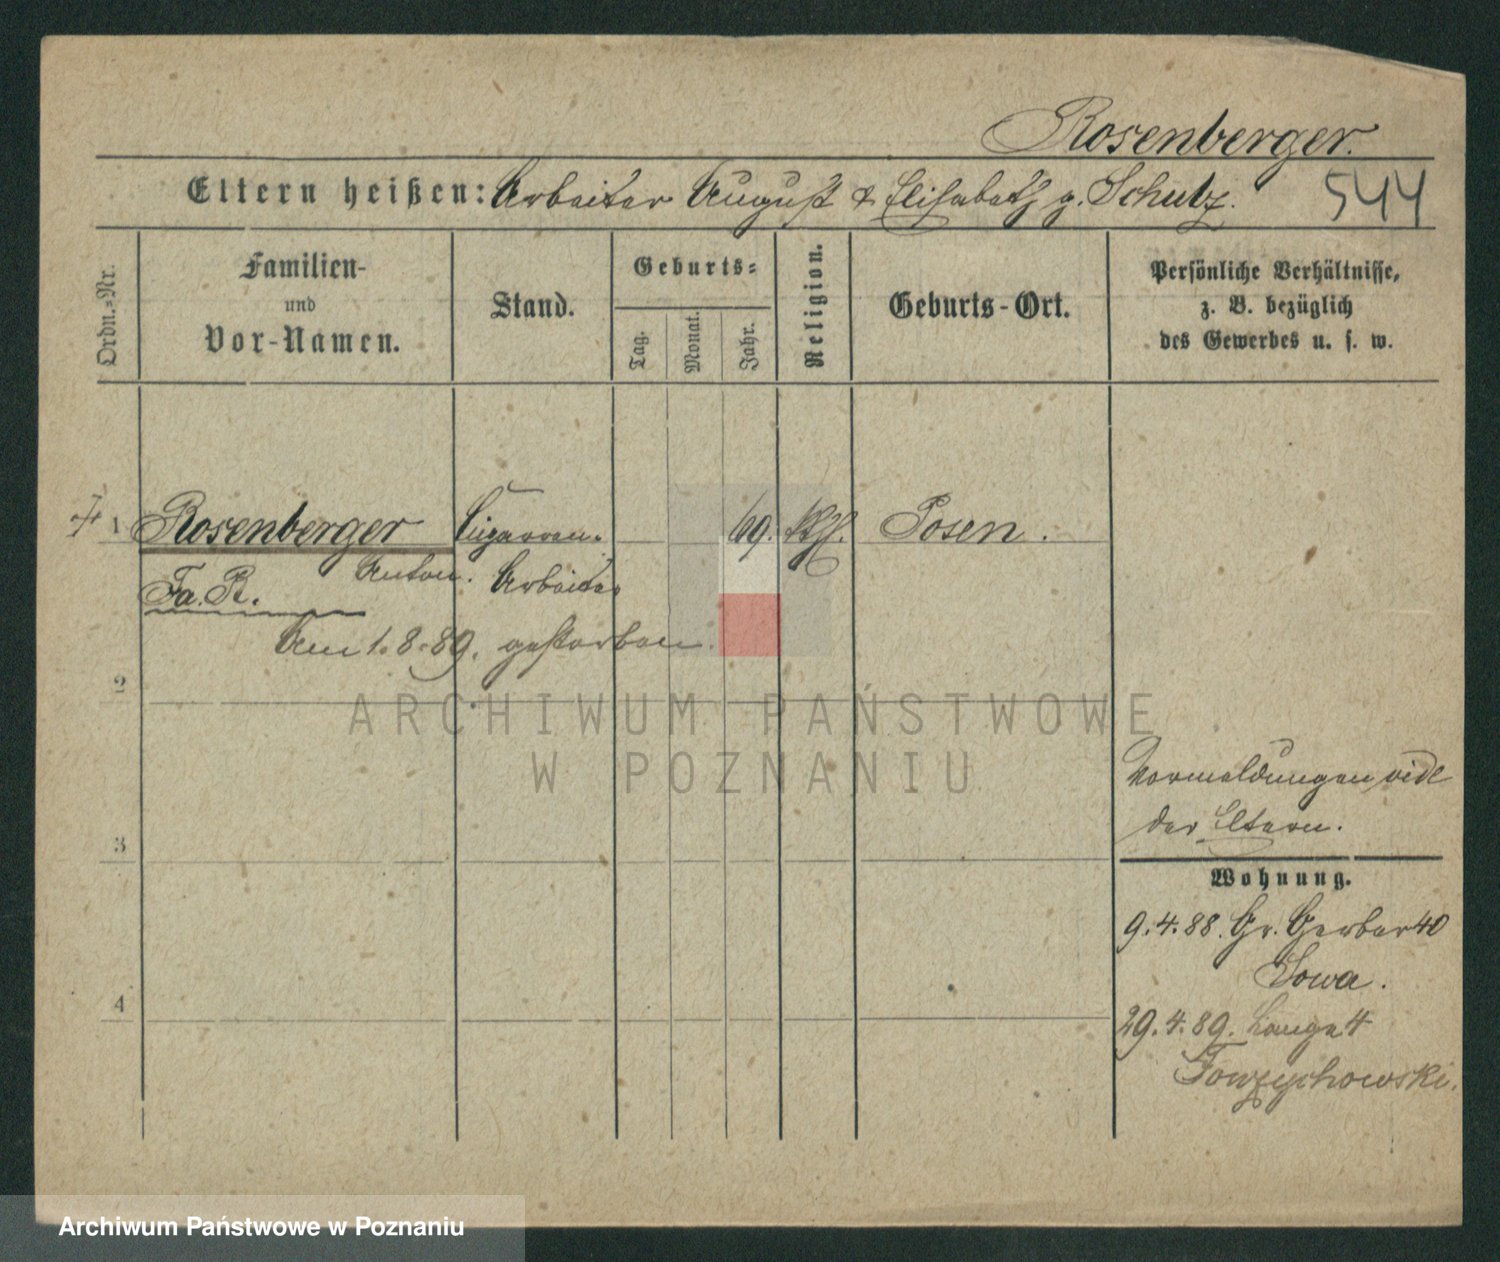 Rosenberger.
Eltern heißen: Arbeiter August & Elisabeth g. Schulz.
544
Ordn.-Nr.
Familien-
und
Vor-Namen.
Stand.
Geburts-
Tag.
Monat.
Jahr.
Religion.
Geburts-Ort.
Persönliche Verhältnisse,
z. B. bezüglich
des Gewerbes u. s. w.
1 Rosenberger Cigarren- 69. Kth. Posen.
Anton. Arbeiter
Fa. R.
Am 1.8.89. gestorben.
2
ARCHIWUM PAŃSTWOWE
W POZNANIU
Vormeldungen vide
der Eltern.
3
Wohnung.
9.4.88. Gr. Gerber 40
Sowa.
4
29.4.89. Lange 4
Archiwum Państwowe w Poznaniu